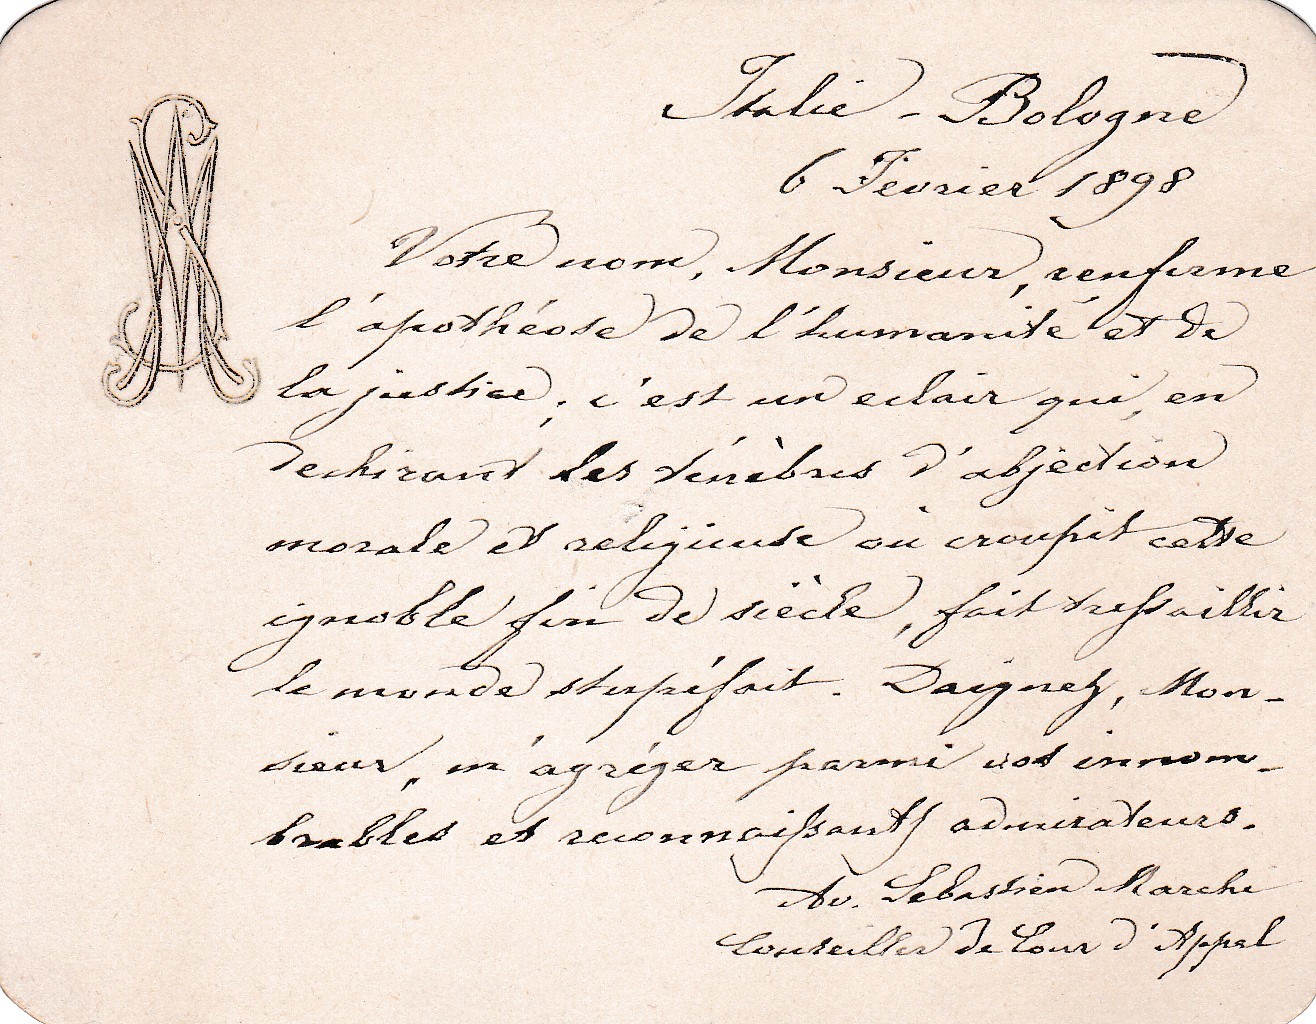 Italie - Bologne
6 Fevrier 1898
Votre nom, Monsieur, renferme
l'apothéose de l'humanité et de
la justice; c'est un eclair qui, en
dechirant les ténèbres d'abjection
morale et religieuse où croupit cette
ignoble fin de siècle, fait tressaillir
le monde stupéfait. Daignez, Mon-
sieur, m'agréger parmi vos innom-
brables et reconnaissants admirateurs.
Av. Sebastien Marchi
Conseiller de Cour d'Appel